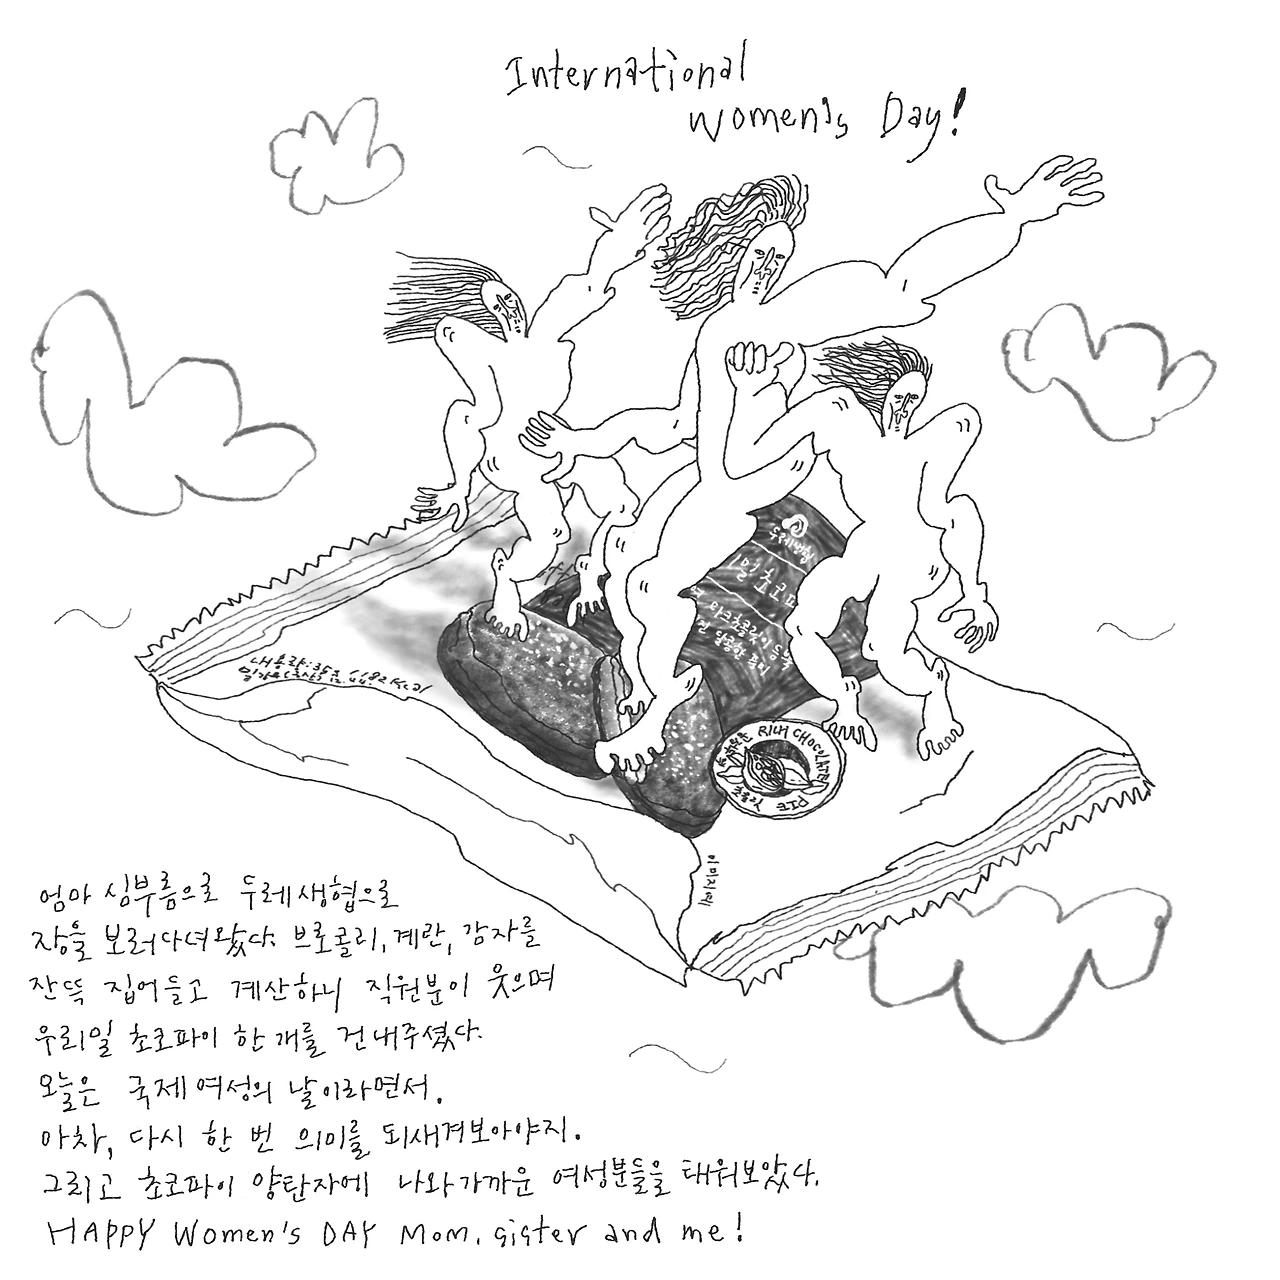 International
Women's Day!
두레생협
우리밀 초코파이
내용량:35g (182Kcal)
RICH CHOCOLATE PIE
초콜릿
이미지예
엄마 심부름으로 두레생협으로
장을 보러다녀왔다. 브로콜리, 계란, 감자를
잔뜩 집어들고 계산하니 직원분이 웃으며
우리밀 초코파이 한 개를 건내주셨다.
오늘은 국제여성의 날이라면서.
아차, 다시 한 번 의미를 되새겨보아야지.
그리고 초코파이 양탄자에 나와가까운 여성분들을 태워보았다.
HAPPY Women's DAY Mom, sister and me!